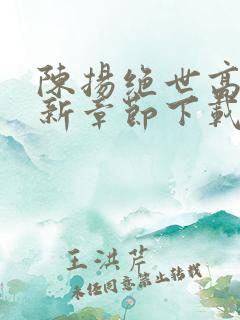 陳揚絶世高
新章節下載
王洪芹
未经同意禁止转载